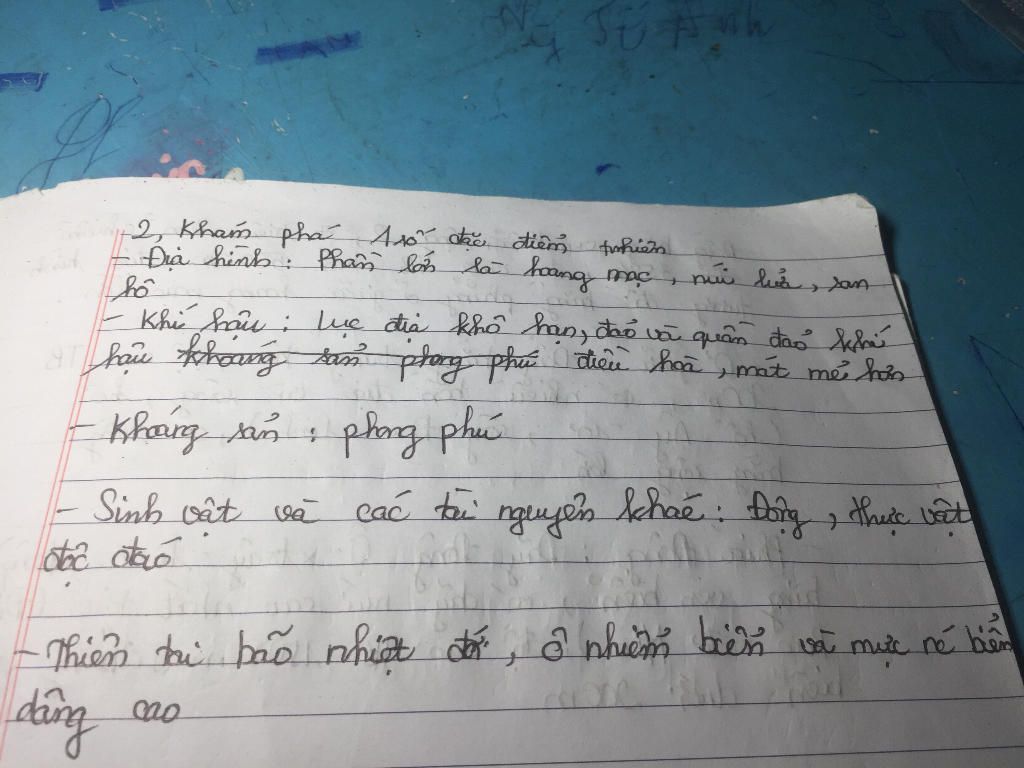 Ng Tú Anh
2, Khám phá 1 số đặc điểm tnhiên
- Địa hình : Phần lớn là hoang mạc, núi lửa, san
hô
- Khí hậu : Lục địa khô hạn, đảo và quần đảo khí
hậu khoáng sản phong phú điều hoà, mát mẻ hơn
- Khoáng sản : phong phú
- Sinh vật và các tài nguyên khác : Động, thực vật
độc đáo
- Thiên tai bão nhiệt đới, ô nhiễm biển và mực nc biển
dâng cao